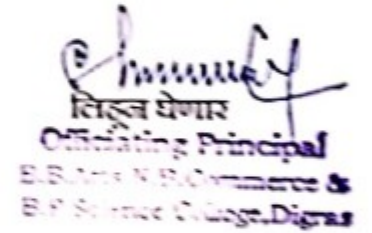 लिहून घेणार
Officiating Principal
E.B.Arts N.B.Commerce &
B.P Science College,Digras